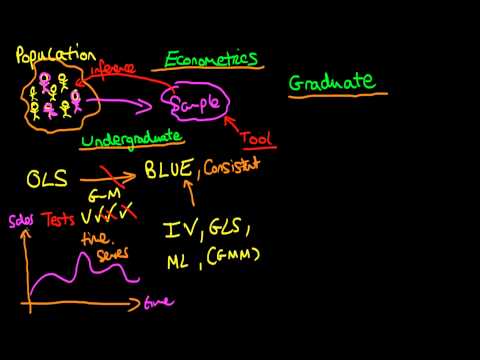 Population
Econometrics
inference
Graduate
Sample
Tool
Undergraduate
OLS
BLUE, Consistent
G-M
Sales
Tests
time
series
IV, GLS,
ML, (GMM)
time